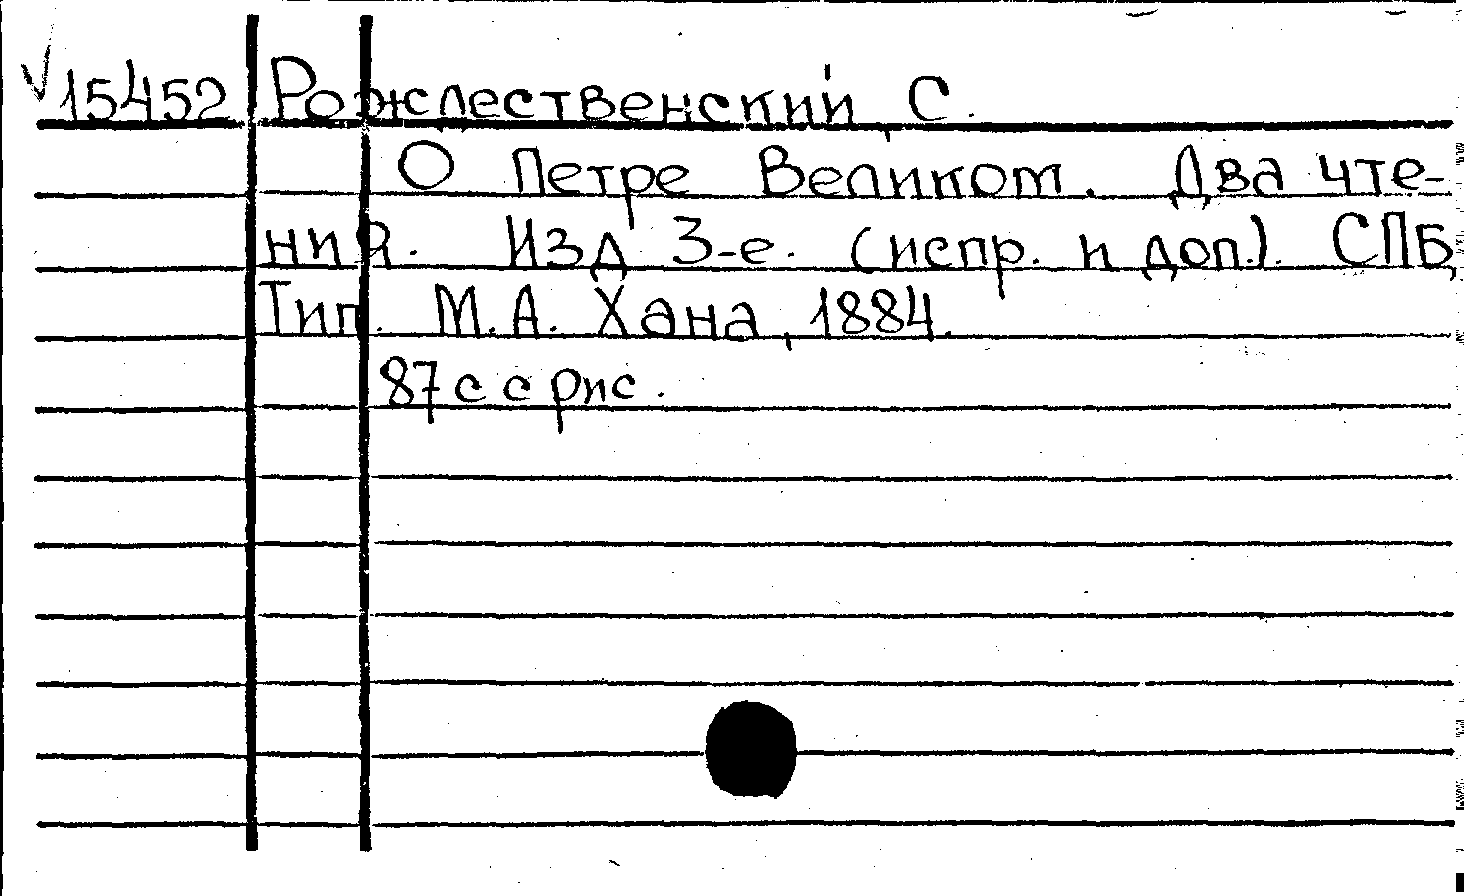 √15452 Рождественский, С.
О Петре Великом. Два чте-
ния. Изд 3-е. (испр. и доп.). СПБ,
Тип. М.А. Хана, 1884.
87 с с рис.